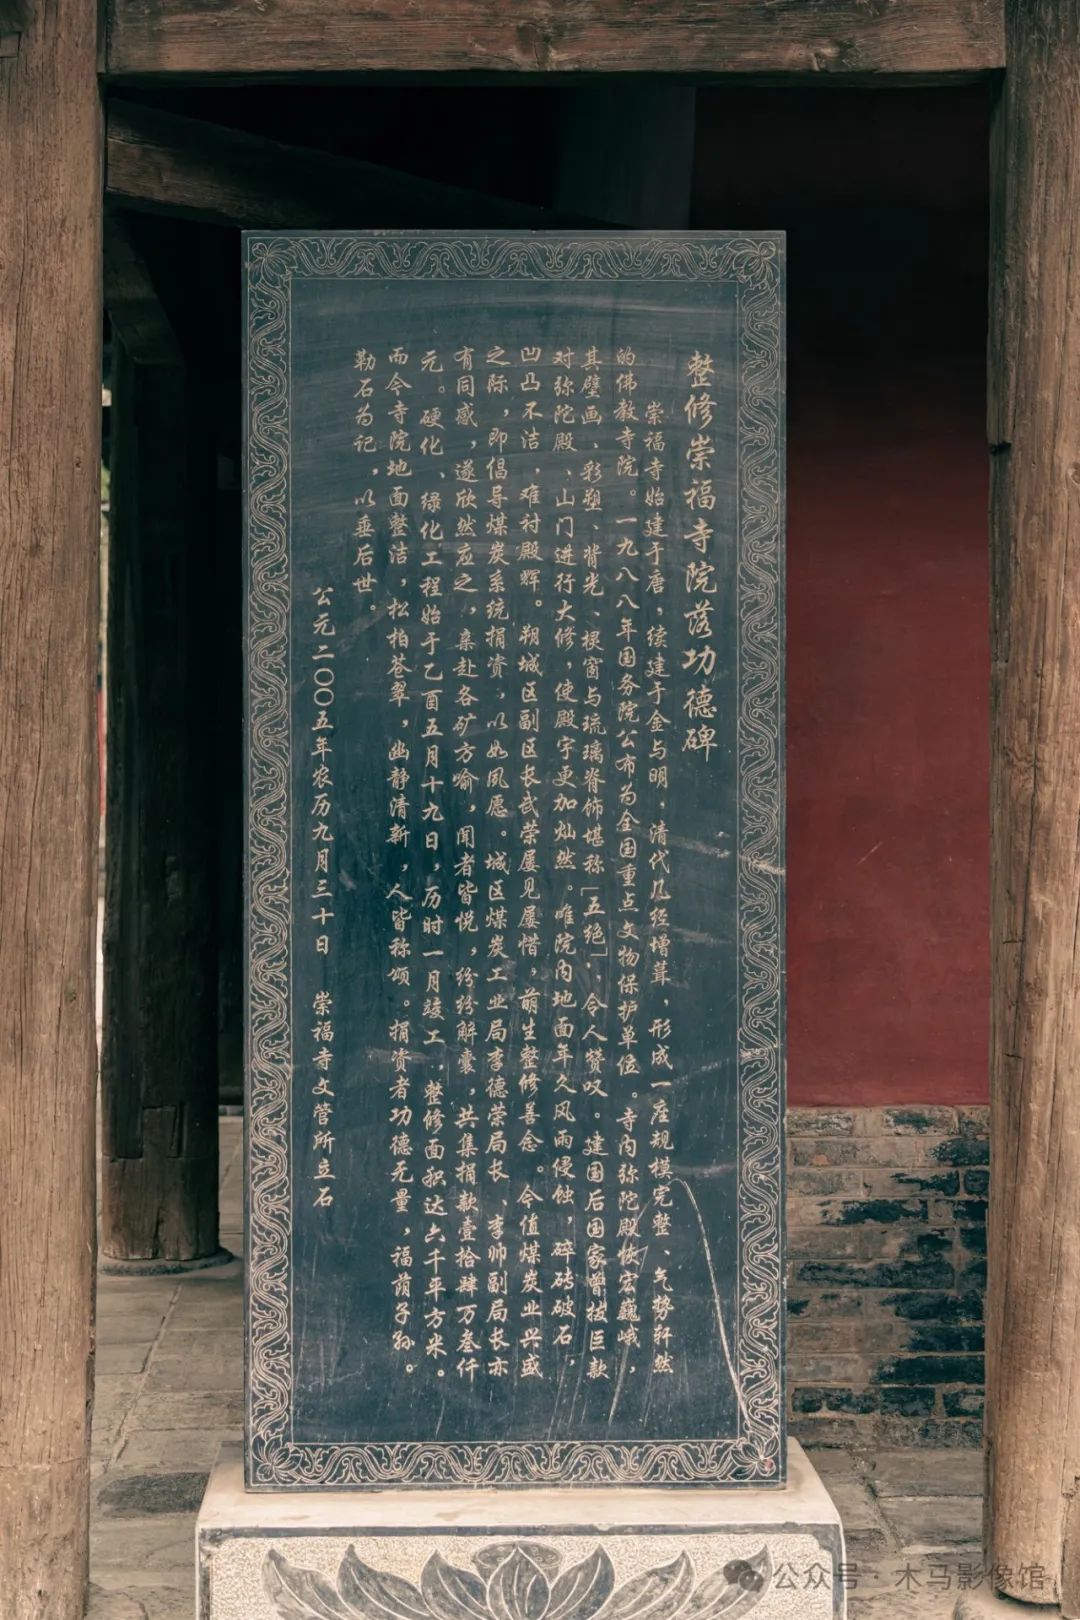 整修崇福寺院落功德碑
崇福寺始建于唐，续建于金与明，清代几经增葺，形成一座规模完整、气势轩然
的佛教寺院。一九八八年国务院公布为全国重点文物保护单位。寺内弥陀殿恢宏巍峨，
其壁画、彩塑、背光、棂窗与琉璃脊饰堪称［五绝］，令人赞叹。建国后国家曾拨巨款
对弥陀殿、山门进行大修，使殿宇更加灿然。唯院内地面年久风雨侵蚀，碎砖破石，
凹凸不洁，难衬殿辉。朔城区副区长武荣屡见屡惜，萌生整修善念。今值煤炭业兴盛
之际，即倡导煤炭系统捐资，以如夙愿。城区煤炭工业局李德荣局长、李帅副局长亦
有同感，遂欣然应之，亲赴各矿方喻，闻者皆悦，纷纷解囊，共集捐款壹拾肆万叁仟
元。硬化、绿化工程始于乙酉五月十九日，历时一月竣工，整修面积达六千平方米。
而今寺院地面整洁，松柏苍翠，幽静清新，人皆称颂。捐资者功德无量，福荫子孙。
勒石为记，以垂后世。
公元二〇〇五年农历九月三十日 崇福寺文管所立石
公众号·木马影像馆